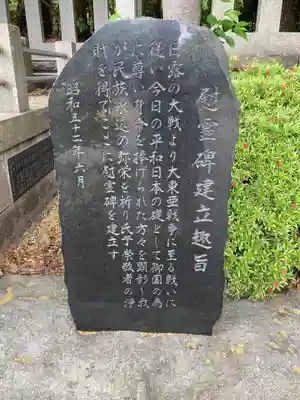 慰霊碑建立趣旨
日露の大戦より大東亜戦争に至る戦いに
従い今日の平和日本の礎として御国の為
に尊い身命を捧げられた方々を顕彰し我
が民族永遠の弥栄を祈り氏子崇敬者の浄
財を得てここに慰霊碑を建立す
昭和五十二年六月